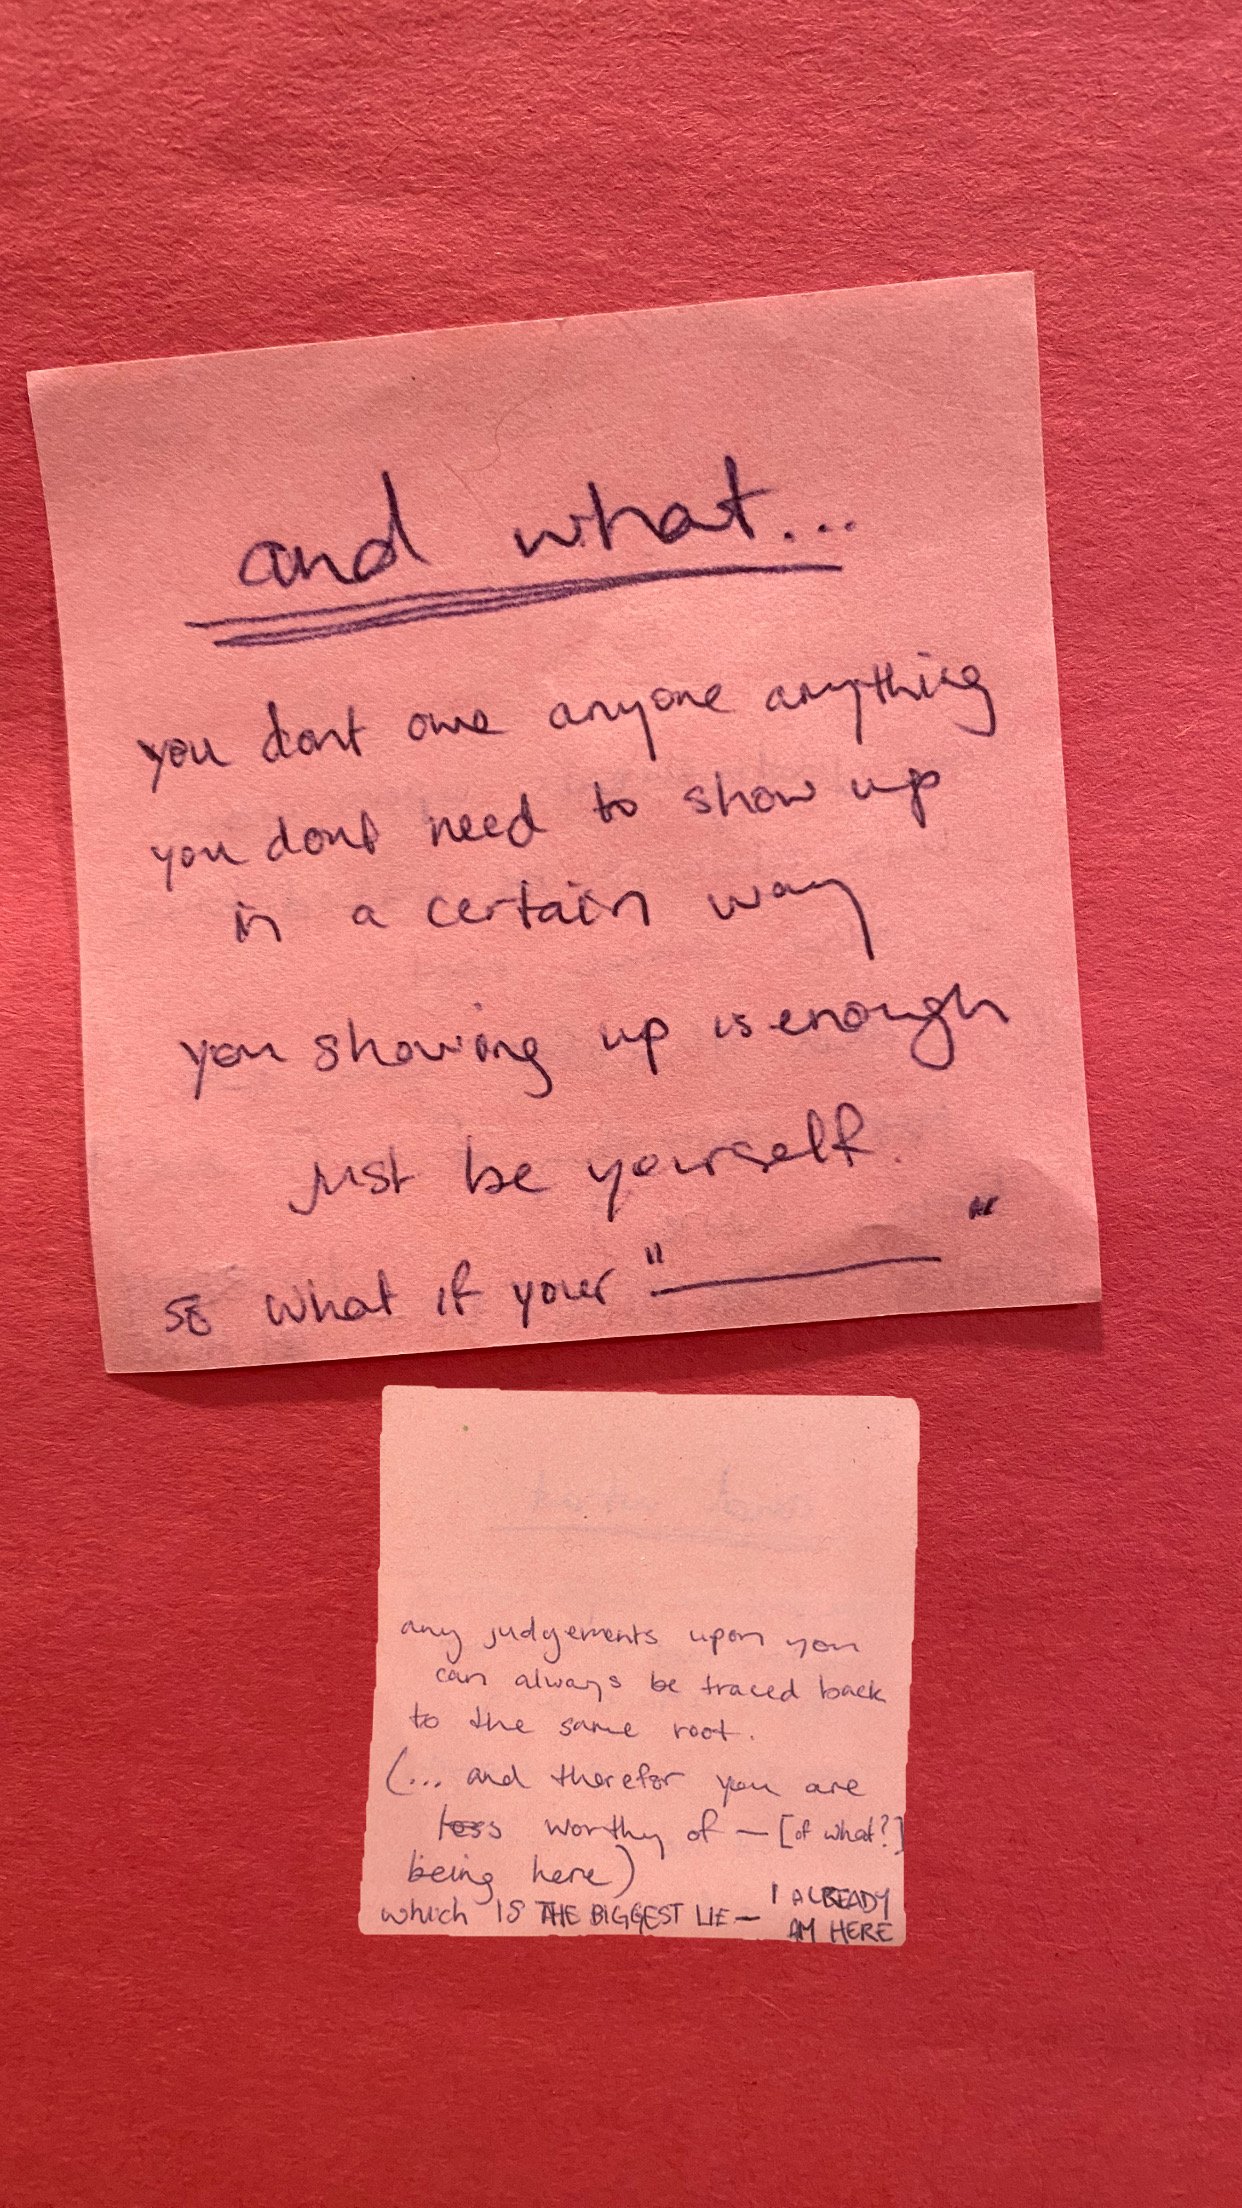 and what...
you dont owe anyone anything
you dont need to show up
in a certain way
you showing up is enough
just be yourself.
so what if your "________"
any judgements upon you
can always be traced back
to the same root.
(... and therefor you are
less worthy of – [of what?]
being here)
which IS THE BIGGEST LIE – I ALREADY
AM HERE